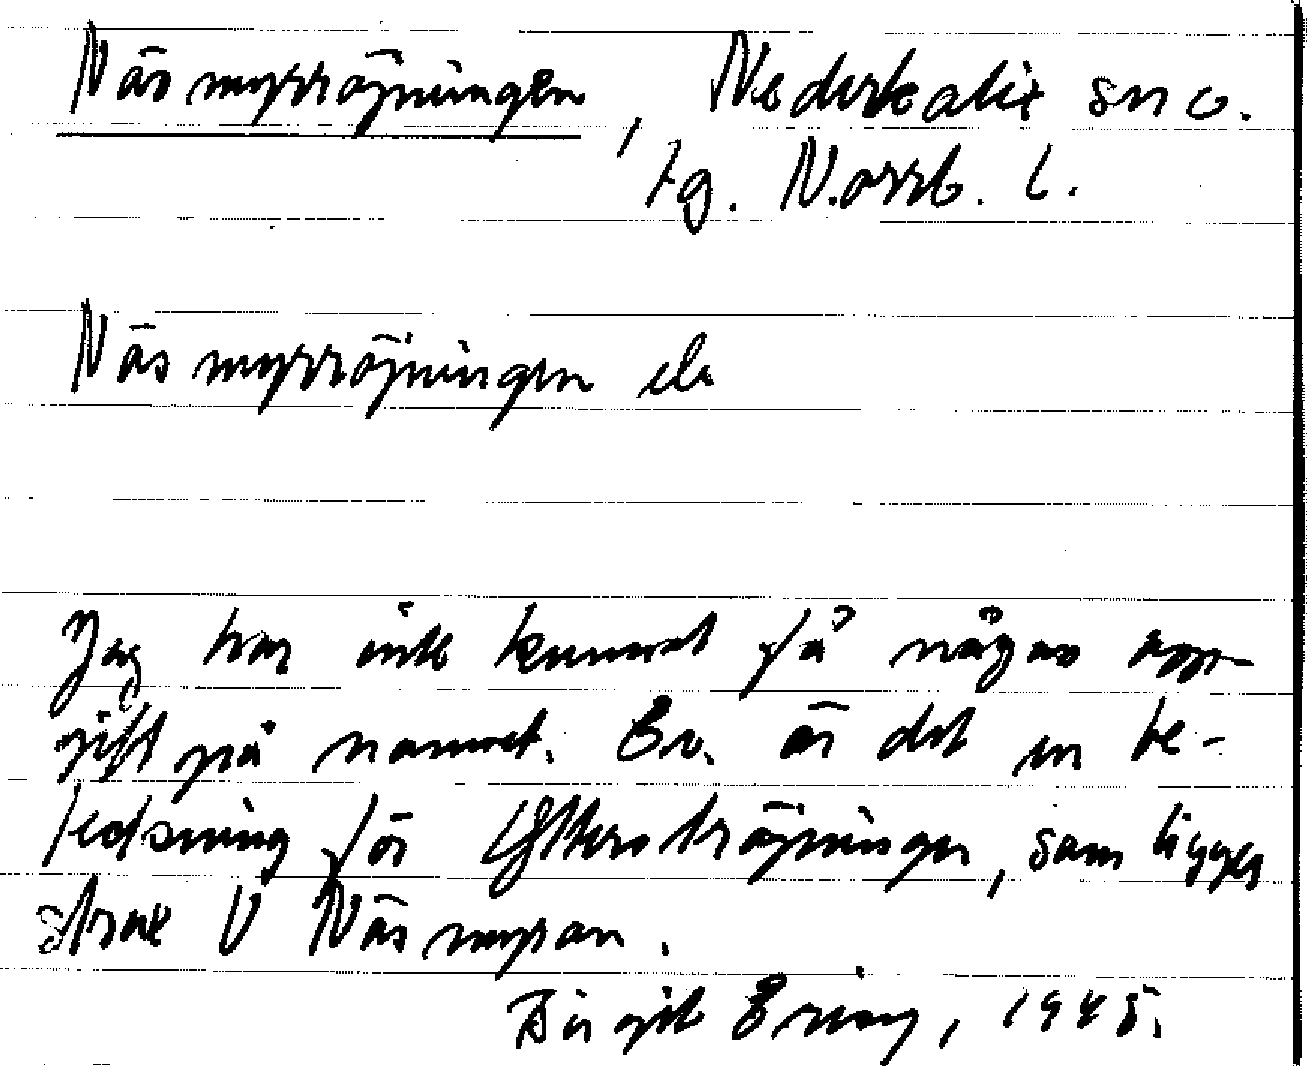 Näsmyrröjningen, Nederkalix sn o.
tg. Norrb. l.
Näsmyrröjningen
Jag har inte kunnat få någon upp-
gift på namnet. Ev. är det en be-
teckning för Ytterströjningen, som ligger
strax V Näsmyran.
Birgit Ering, 1945.